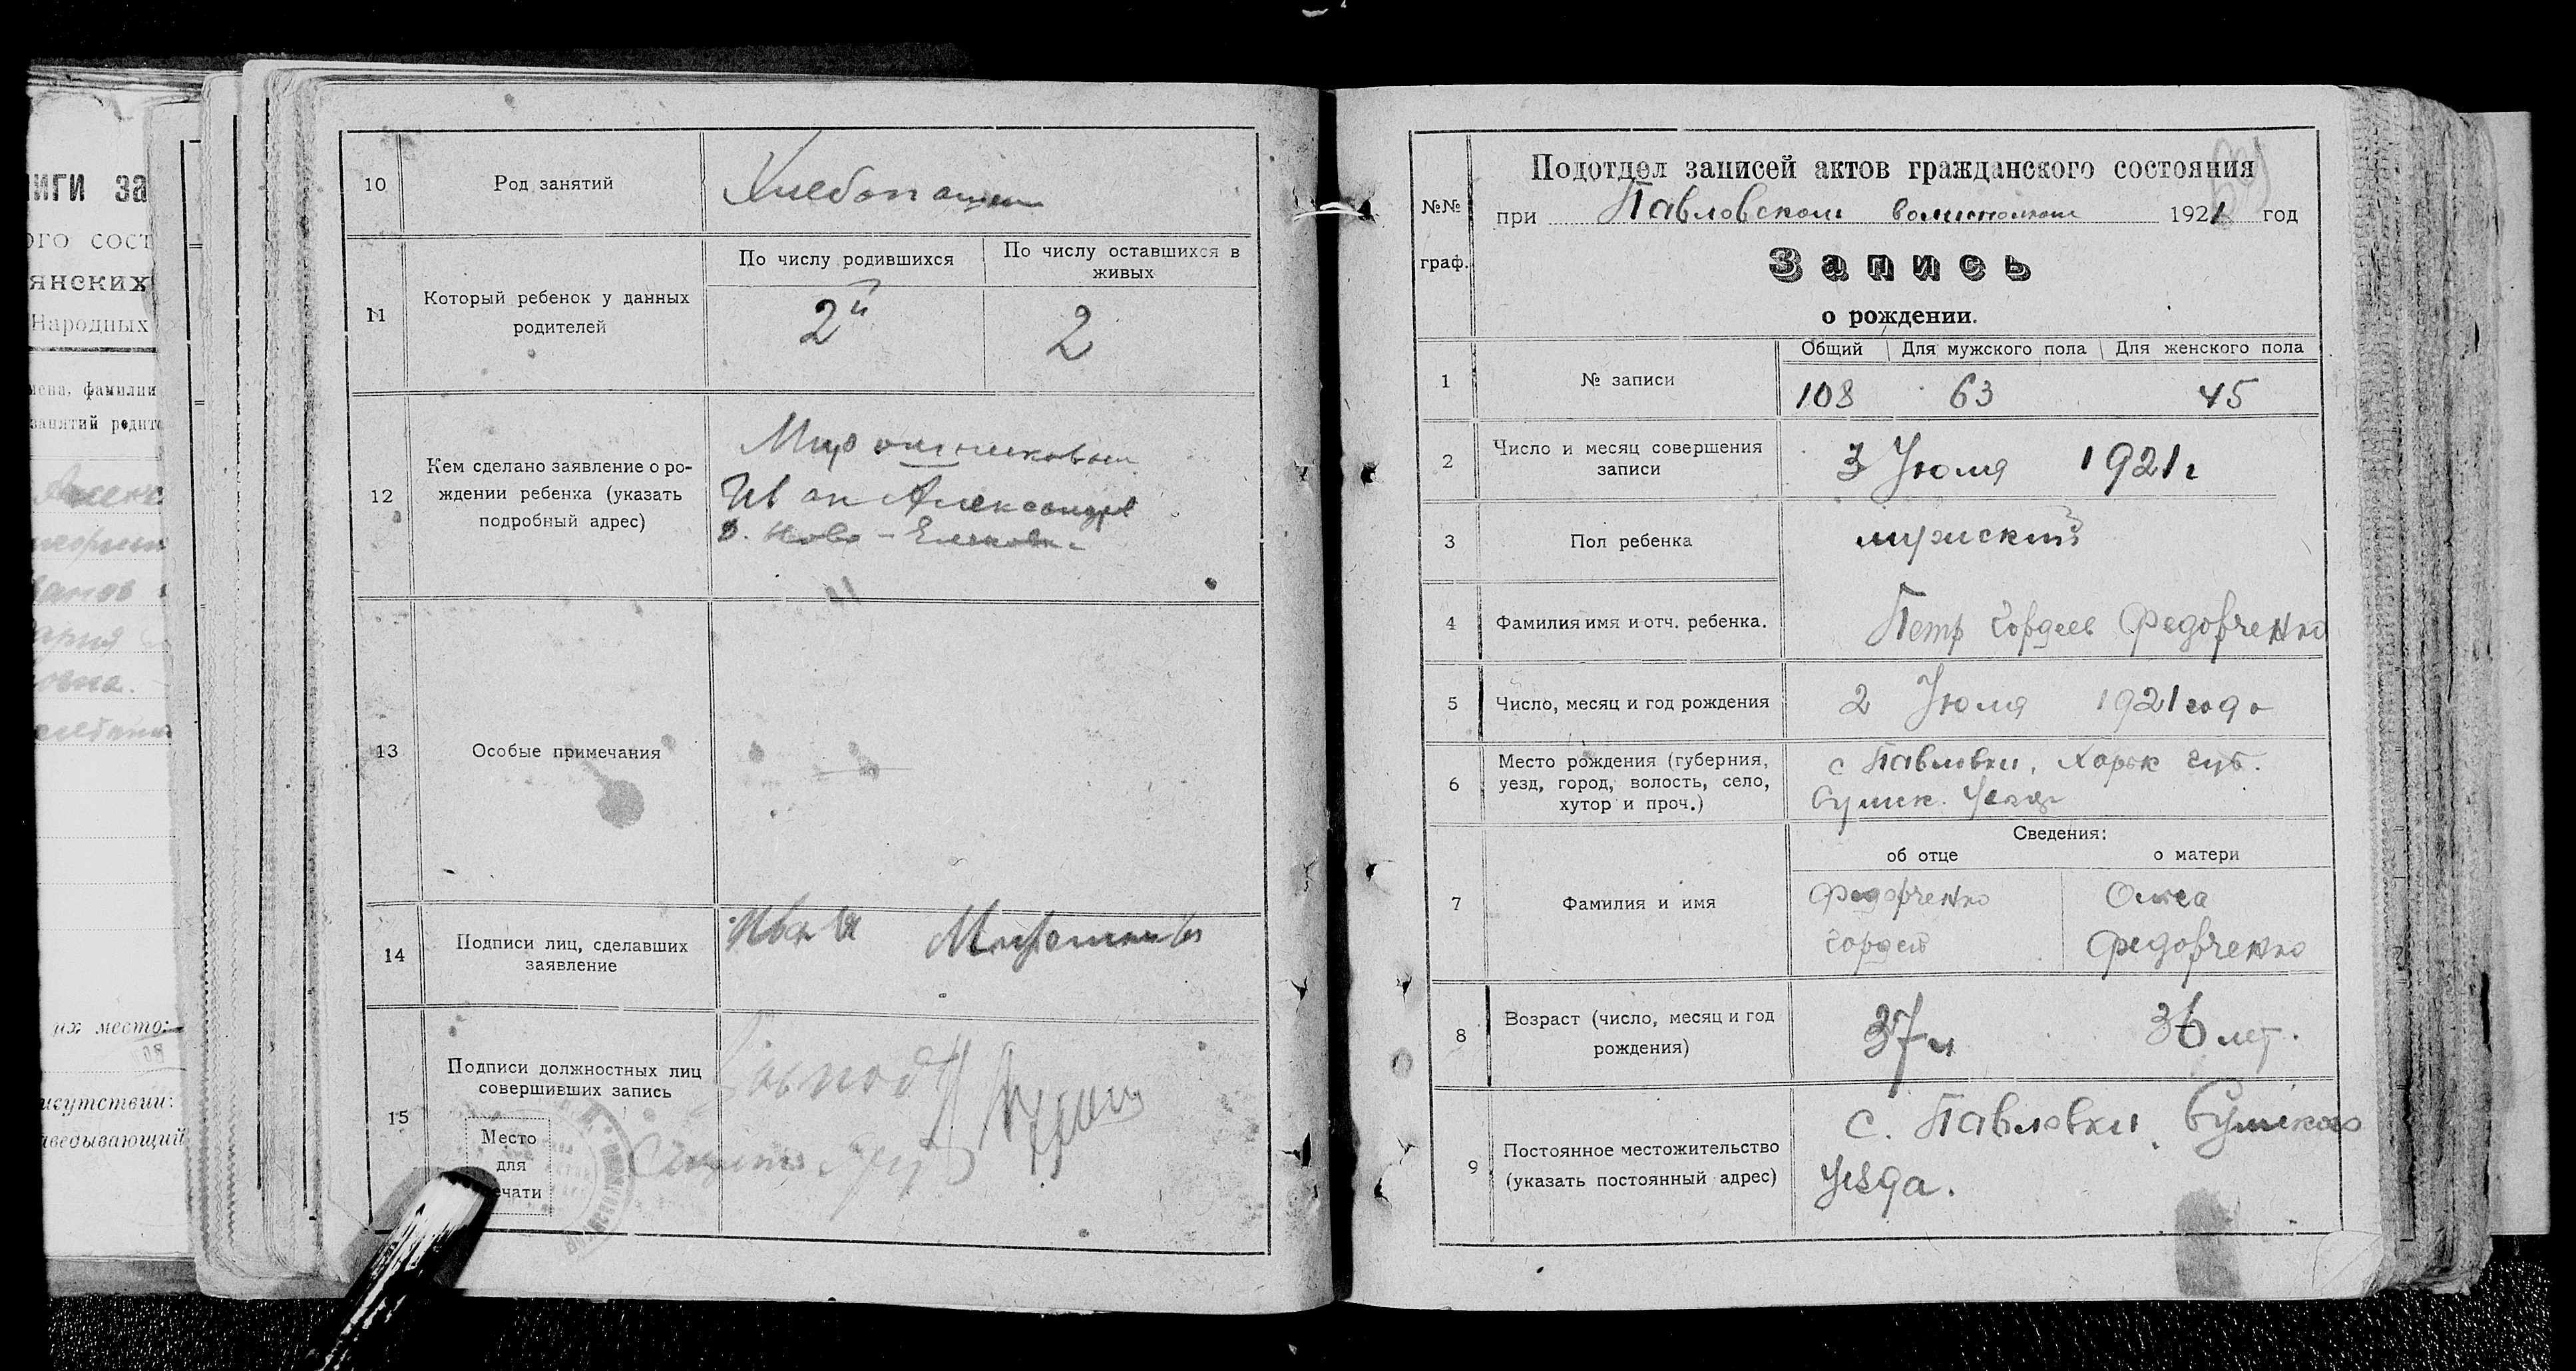 ниги за
ого сост
янских
Народных
мена, фамилии
занятий родите
их место:
исутствии:
аведывающий
10
Род занятий
Хлебопашец
11
Который ребенок у данных
родителей
По числу родившихся
По числу оставшихся в
живых
2й
2
12
Кем сделано заявление о ро-
ждении ребенка (указать
подробный адрес)
Мирошниковым
Иван Александр
13
Особые примечания
14
Подписи лиц, сделавших
заявление
Иван
15
Подписи должностных лиц
совершивших запись
Место
для
ечати
№№
граф.
Подотдел записей актов гражданского состояния
при Павловском волисполкоме 1921 год
Запись
о рождении.
1
№ записи
Общий
Для мужского пола
Для женского пола
108
63
45
2
Число и месяц совершения
записи
3 Июля 1921 г
3
Пол ребенка
мужский
4
Фамилия имя и отч. ребенка.
Петр Гордеев Федорченко
5
Число, месяц и год рождения
2 Июля 1921 года
6
Место рождения (губерния,
уезд, город, волость, село,
хутор и проч.)
с Павловки, Харьк губ.
Сумск. Уезда
Сведения:
об отце
о матери
7
Фамилия и имя
Федорченко
Гордей
Ольга
Федорченко
8
Возраст (число, месяц и год
рождения)
37 л
36 лет.
9
Постоянное местожительство
(указать постоянный адрес)
с. Павловки Сумского
Уезда.